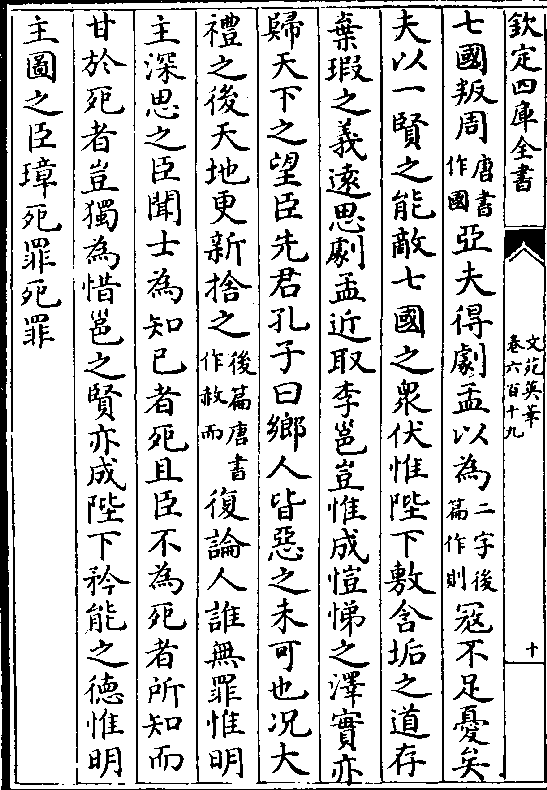 欽定四庫全書
文苑英華
卷六百十九
十
七國叛周唐書作國亞夫得劇孟以為二字後篇作則冦不足憂矣
夫以一賢之能敵七國之衆伏惟陛下敷含垢之道存
棄瑕之義遠思劇孟近取李邕豈惟成愷悌之澤實亦
歸天下之望臣先君孔子曰鄉人皆惡之未可也况大
禮之後天地更新捨之後篇唐書作赦而復論人誰無罪惟明
主深思之臣聞士為知已者死且臣不為死者所知而
甘於死者豈獨為惜邕之賢亦成陛下矜能之德惟明
主圖之臣璋死罪死罪